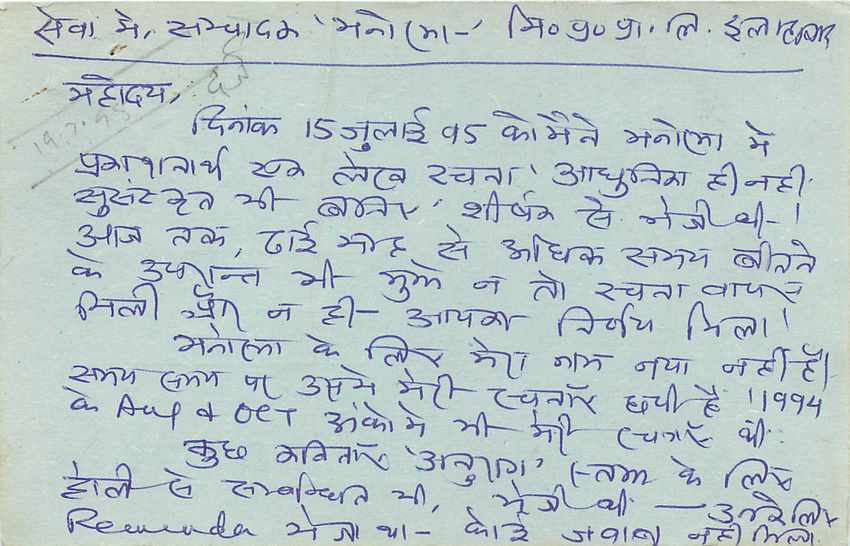 सेवा में, सम्पादक 'मनोरमा' मि० प्र० प्रा. लि. इलाहाबाद
महोदय,
19.7.95
दिनांक 15 जुलाई 95 को मैने मनोरमा में
प्रकाशनार्थ एक लेख रचना 'आधुनिक ही नहीं
सुसंस्कृत भी बनिए' शीर्षक से भेजी थी।
आज तक, ढाई माह से अधिक समय बीतने
के उपरान्त भी मुझे न तो रचना वापस
मिली और न ही आपका निर्णय मिला।
मनोरमा के लिए मेरा नाम नया नहीं है।
समय समय पर उसमे मेरी रचनाएँ छपी है। 1994
के Aug & OCT अंको मे भी मेरी रचनाएँ थी
कुछ कविताएँ 'अनुराग' स्तम्भ के लिए
होली से सम्बन्धित भी, भेजी थी — उसके लिए
Reminder भेजा था - कोई जवाब नहीं मिला.